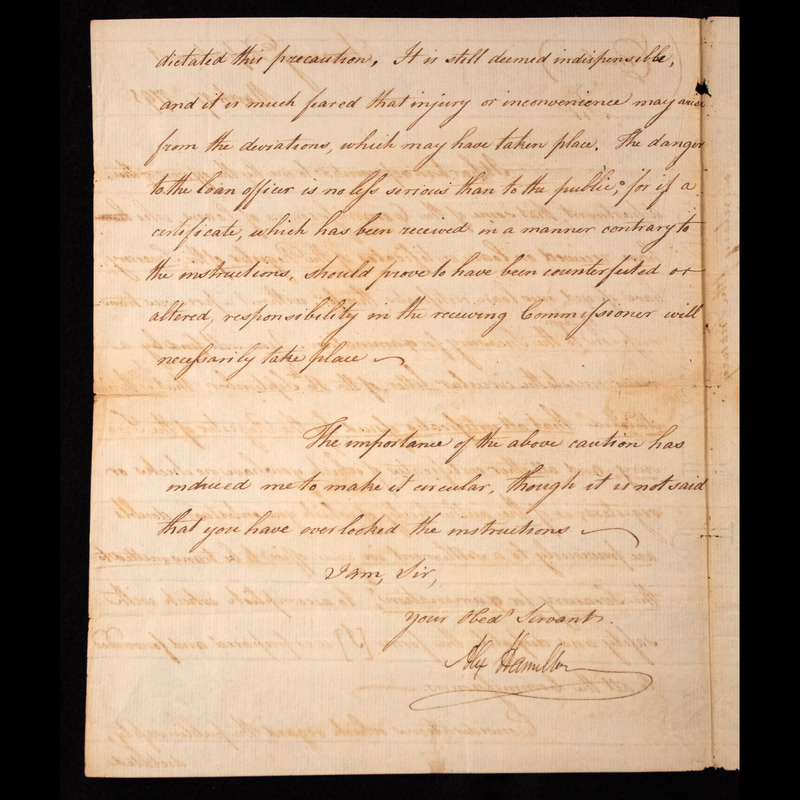 dictated this precaution. It is still deemed indispensible,
and it is much feared that injury or inconvenience may arise
from the deviations, which may have taken place. The danger
to the loan officer is no less serious than to the public; for if a
certificate, which has been received in a manner contrary to
the instructions, should prove to have been counterfeited or
altered, responsibility in the receiving Commissioner will
necessarily take place
The importance of the above caution has
induced me to make it circular, though it is not said
that you have overlooked the instructions
I am, Sir,
Your Obedt Servant.
Alex Hamilton